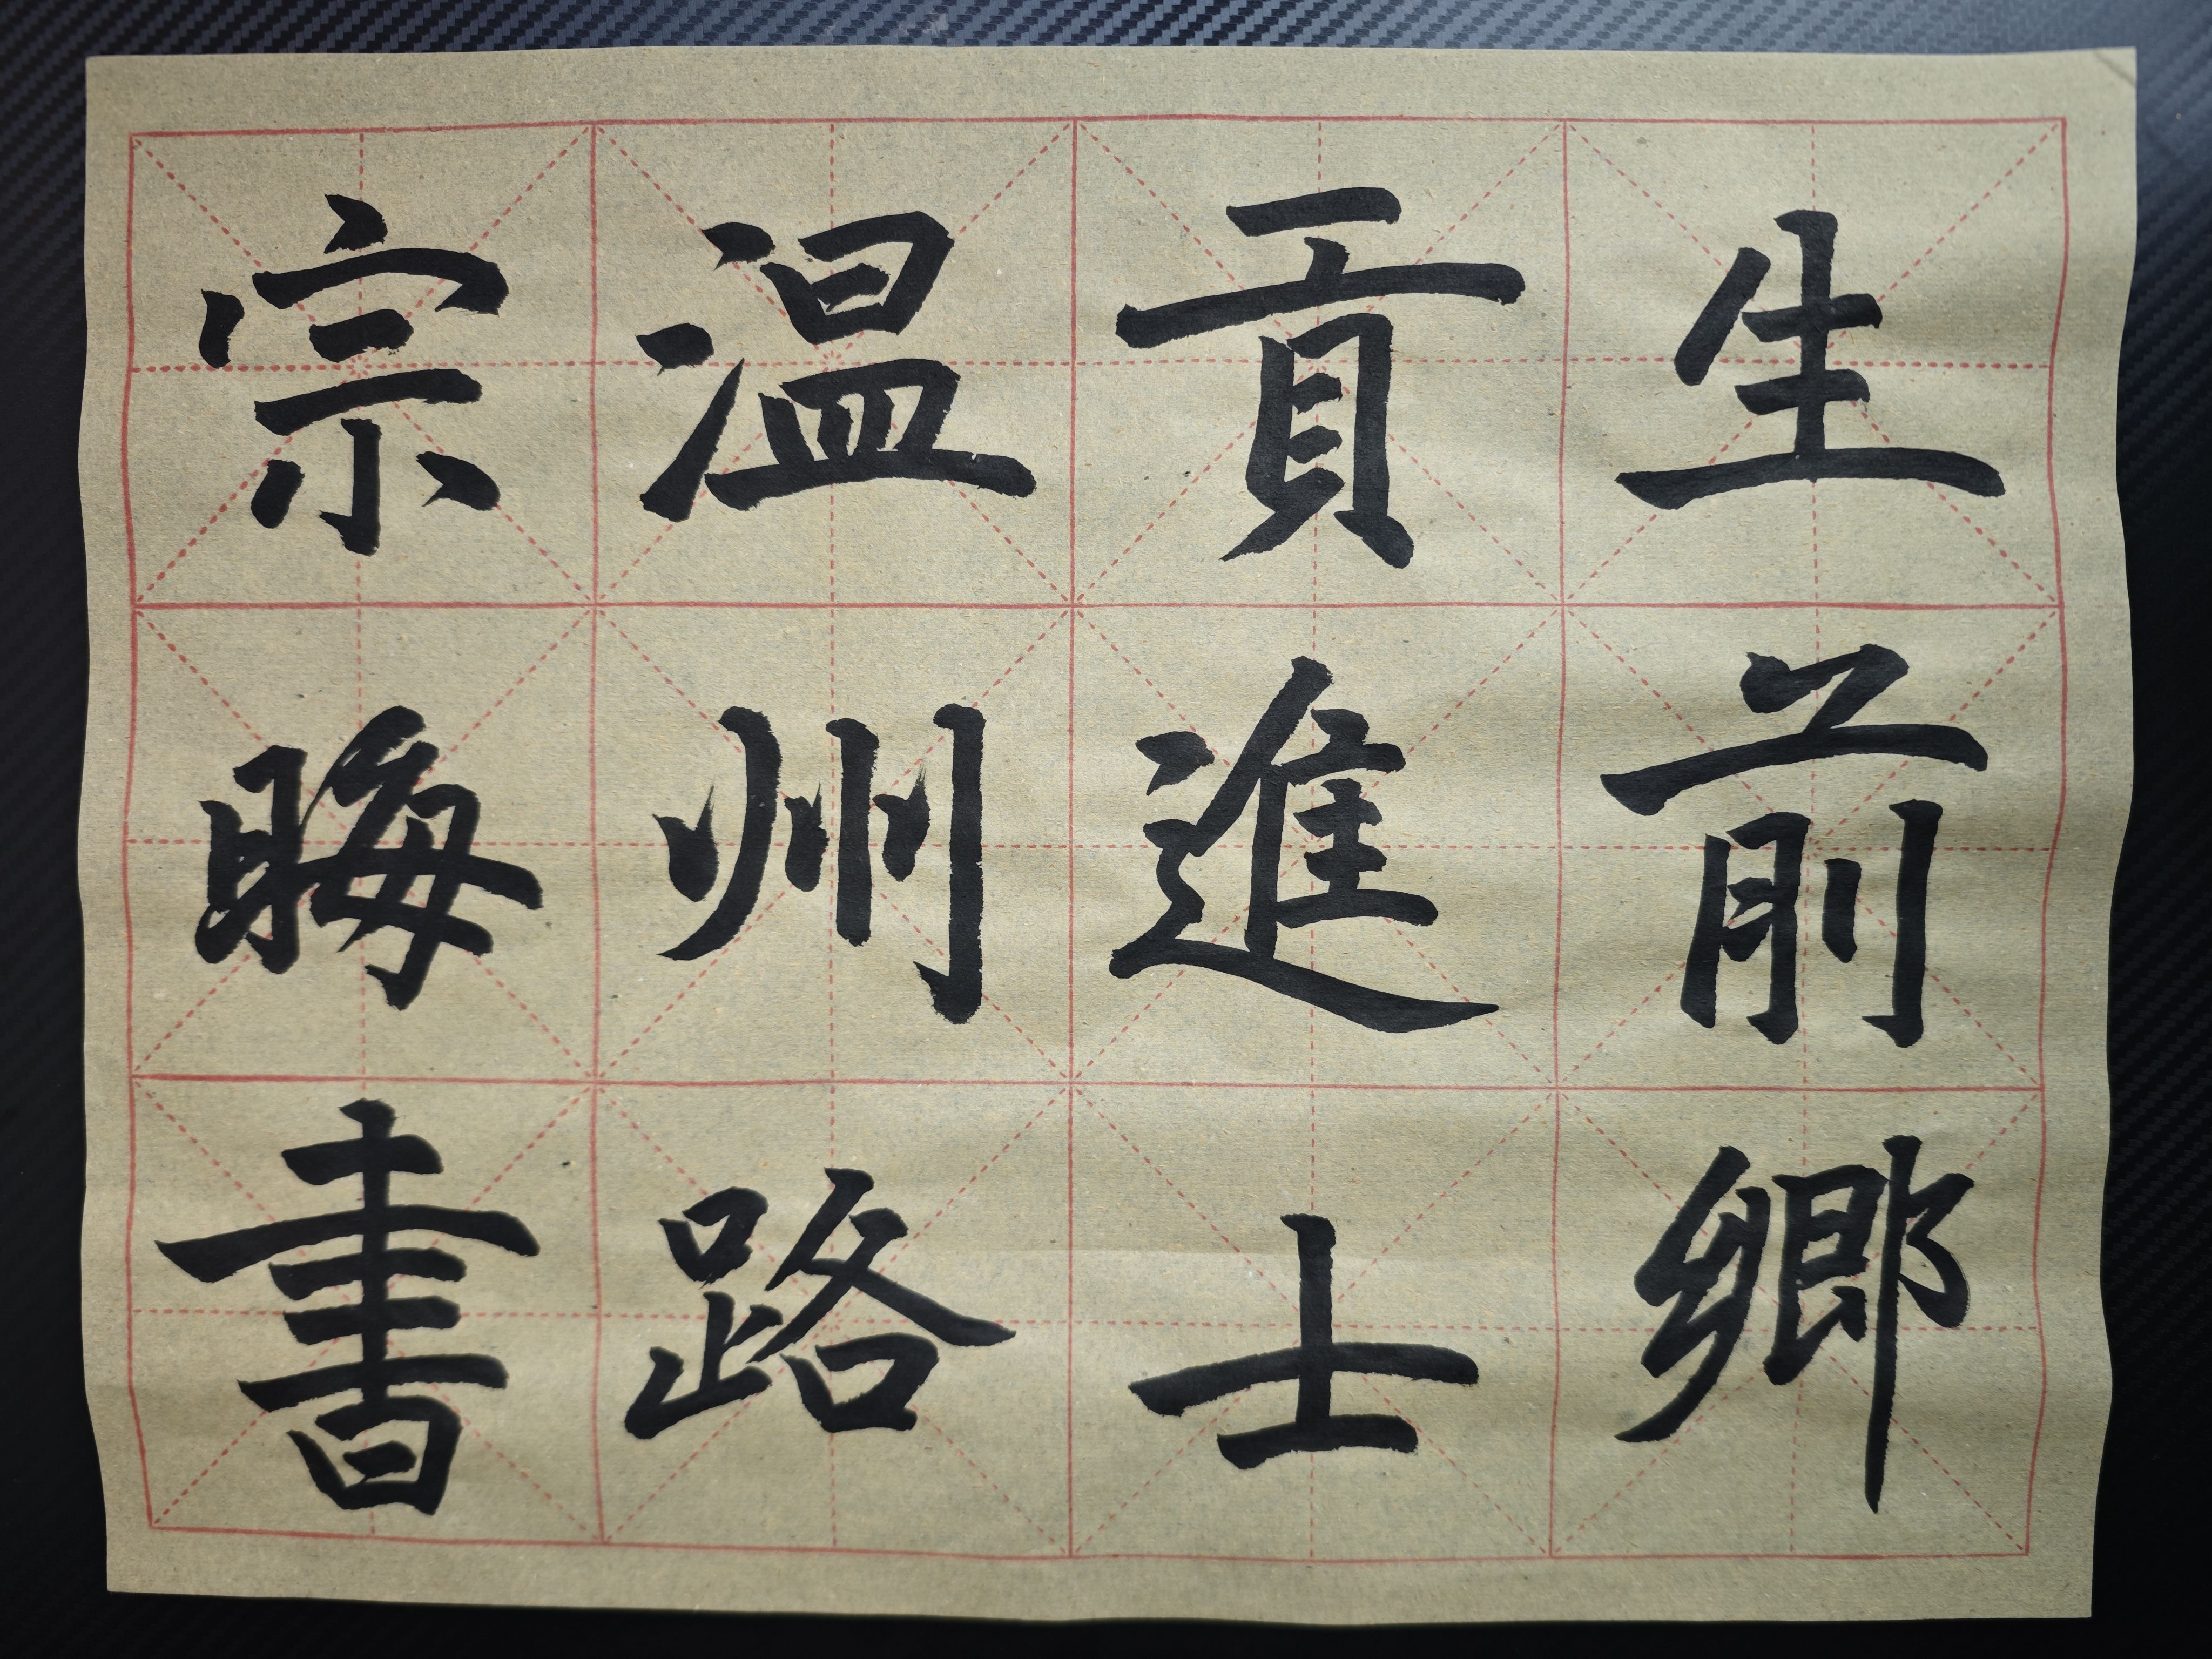 生前鄉
貢進士
温州路
宗晦書